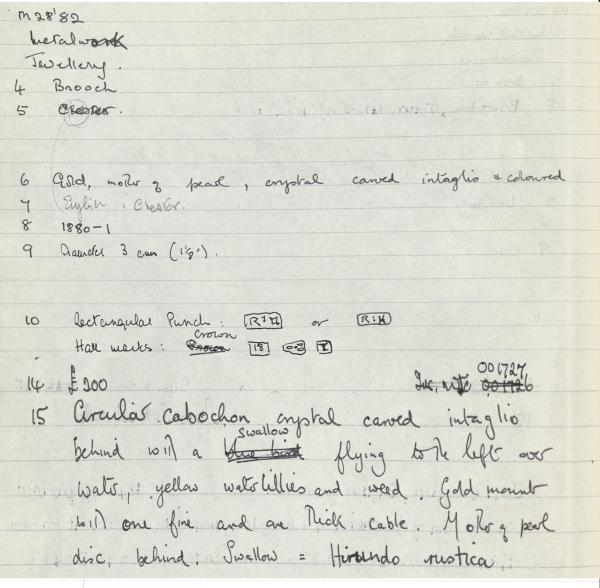 M 28'82
Metalwork
Jewellery.
4 Brooch
5 Chester.
6 Gold, mother of pearl, crystal carved intaglio & coloured
7 English. Chester.
8 1880-1
9 Diameter 3 cm (1⅛").
10 Rectangular Punch: R:M or R:M
Crown
Hall marks: Crown 18
001727
14 £200 Inc. 001726
15 Circular cabochon crystal carved intaglio
swallow
behind with a blue bird flying to the left over
water, yellow waterlillies and weed. Gold mount
with one fine and one thick cable. Mother of pearl
disc, behind. Swallow = Hirundo rustica.